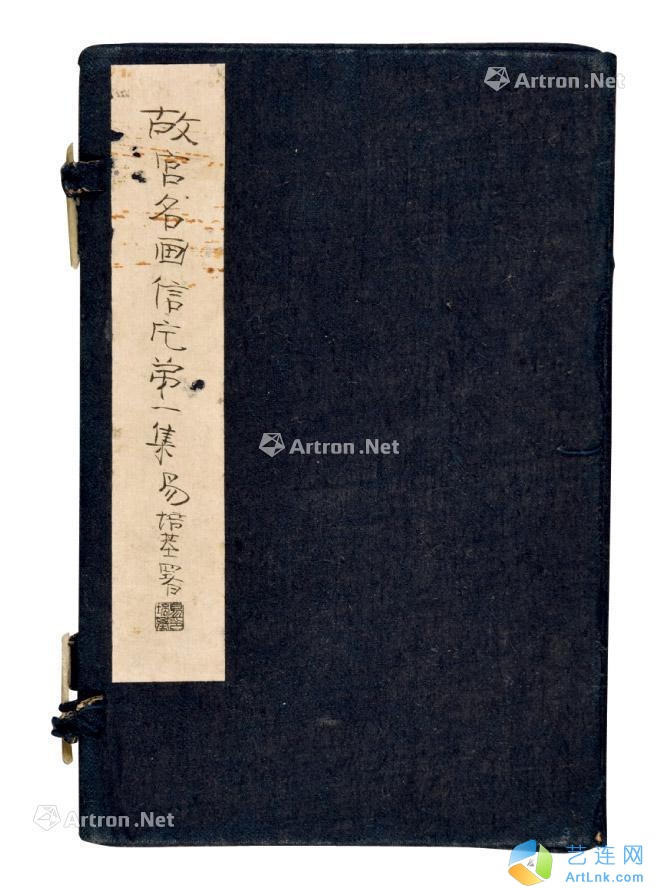 Artron.Net
故宫名画信片第一集易培基署
Artron.Net
Artron.Net
艺连网
ArtLnk.com